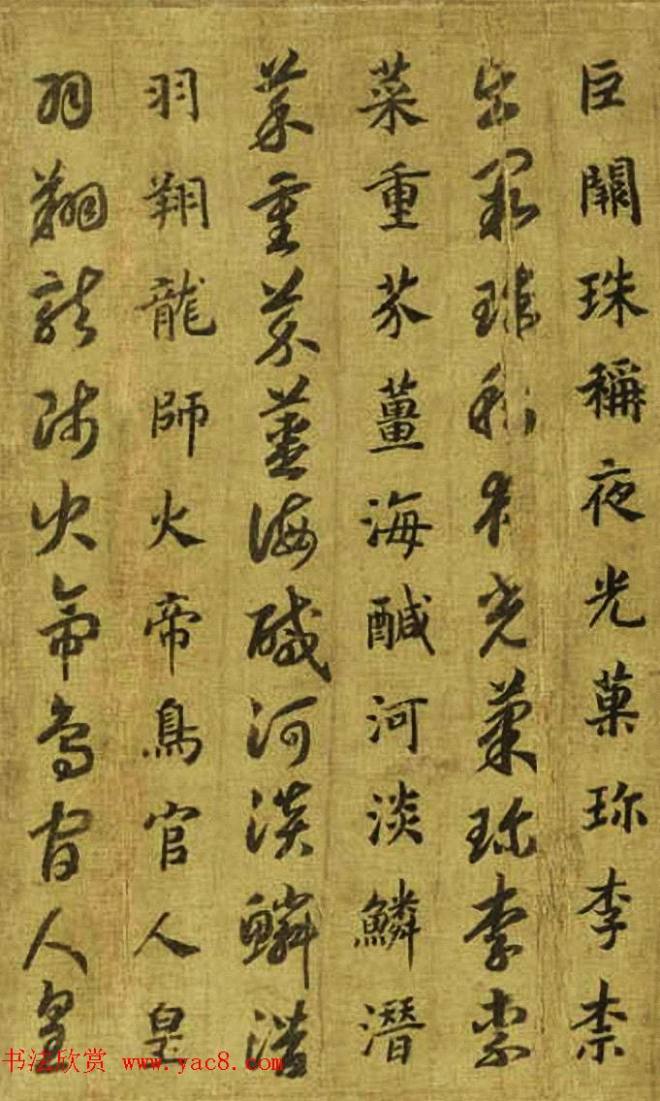 巨闕珠稱夜光菓珎李柰
巨闕珠稱夜光菓珎李柰
菜重芥薑海醎河淡鱗潛
菜重芥薑海醎河淡鱗潛
羽翔龍師火帝鳥官人皇
羽翔龍師火帝鳥官人皇
书法欣赏 www.yac8.com